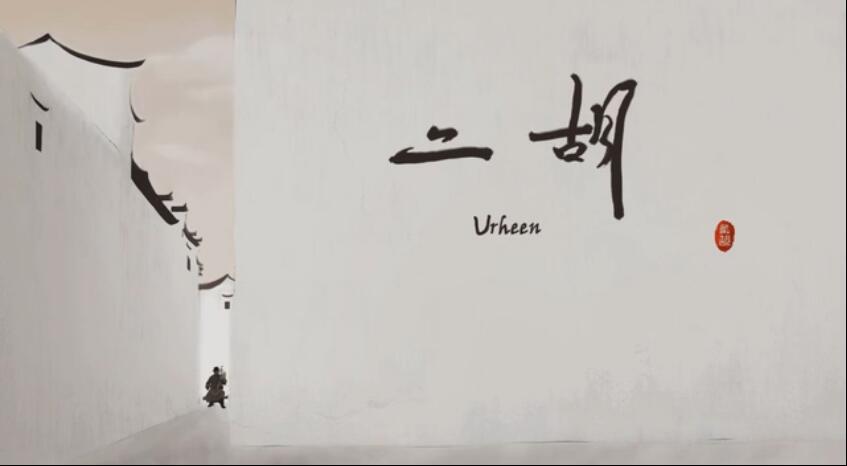 二胡
Urheen